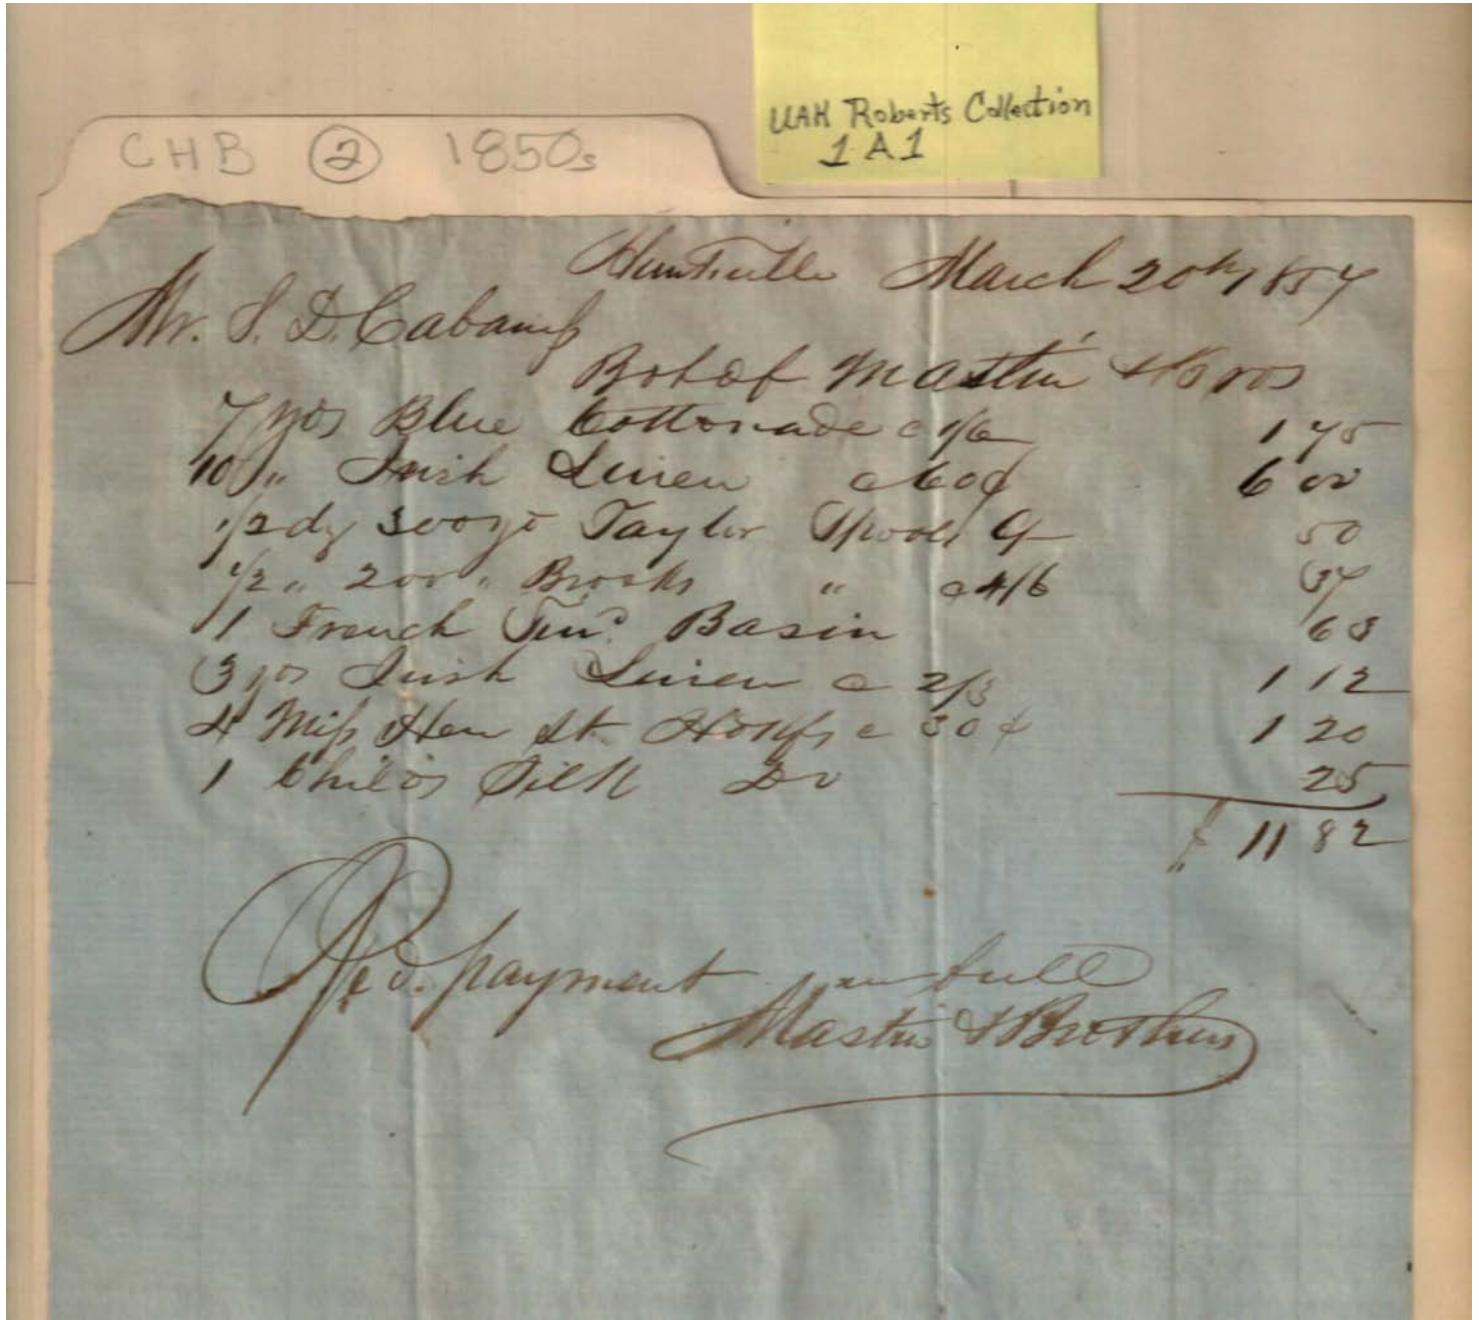 UAH Roberts Collection
1 A 1
CHB ② 1850s
Huntsville March 20th 1857
Mr. S. D. Cabaniss
Bot of Mastin & Bros
7 yds Blue Cottonade @ 1/6 1 75
10 " Irish Linen @ 60¢ 6 00
1/2 dz 300 yd Taylor Spool 50
1/2 " 200 " Brooks " @ 4/6 37
1 French Basin 63
3 yds Irish Linen @ 2/3 1 12
4 Miss Hem St. Hdkfs @ 30¢ 1 20
1 Child's Silk Do 25
$ 11 82
Recd. payment in full
Mastin & Brothers